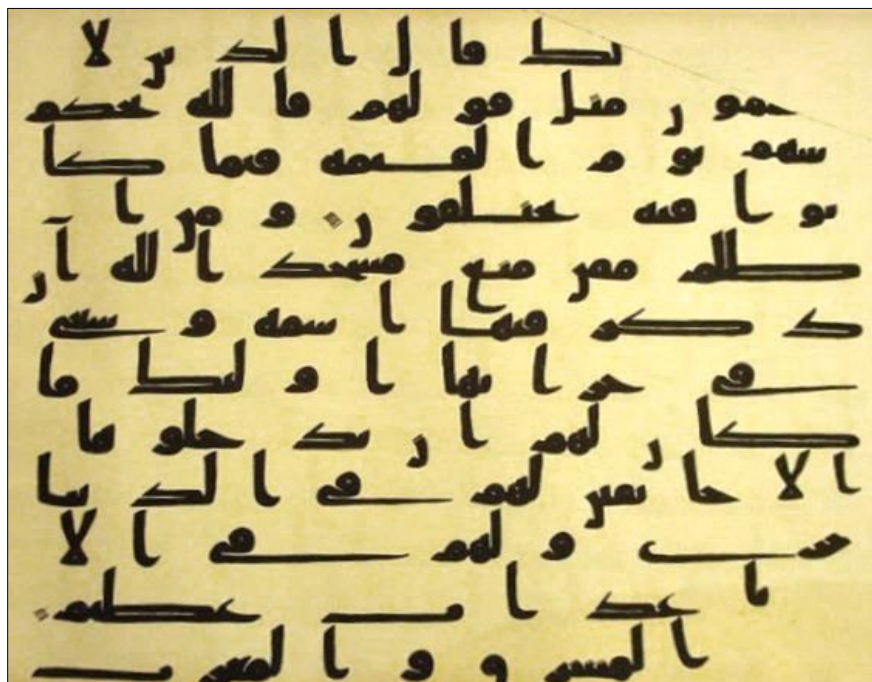 لك قال الذين لا
يعلمون مثل قولهم فالله يحكم
بينهم يوم القيمة فيما كا
نوا فيه يختلفون ومن ا
ظلم ممن منع مسجد الله ان
يذكر فيها اسمه وسعى
في خرابها اولئك ما
كان لهم ان يدخلوها
الا خائفين لهم في الدنيا
خزي ولهم في الا
عذاب عظيم
المشرق والمغرب